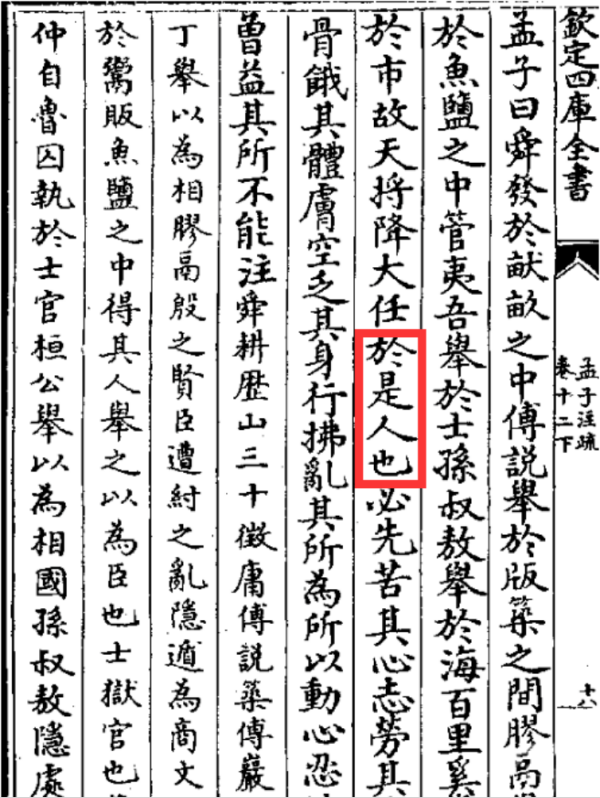 欽定四庫全書
孟子注疏
卷十二下
十八
孟子曰舜發於畎畝之中傅説舉於版築之間膠鬲
於魚鹽之中管夷吾舉於士孫叔敖舉於海百里奚
於市故天將降大任於是人也必先苦其心志勞其
骨餓其體膚空乏其身行拂亂其所為所以動心忍
曾益其所不能注舜耕歴山三十徵庸傅説築傅巖
丁舉以為相膠鬲殷之賢臣遭紂之亂隱遁為商文
於鬻販魚鹽之中得其人舉之以為臣也士獄官也
仲自魯囚執於士官桓公舉以為相國孫叔敖隱處